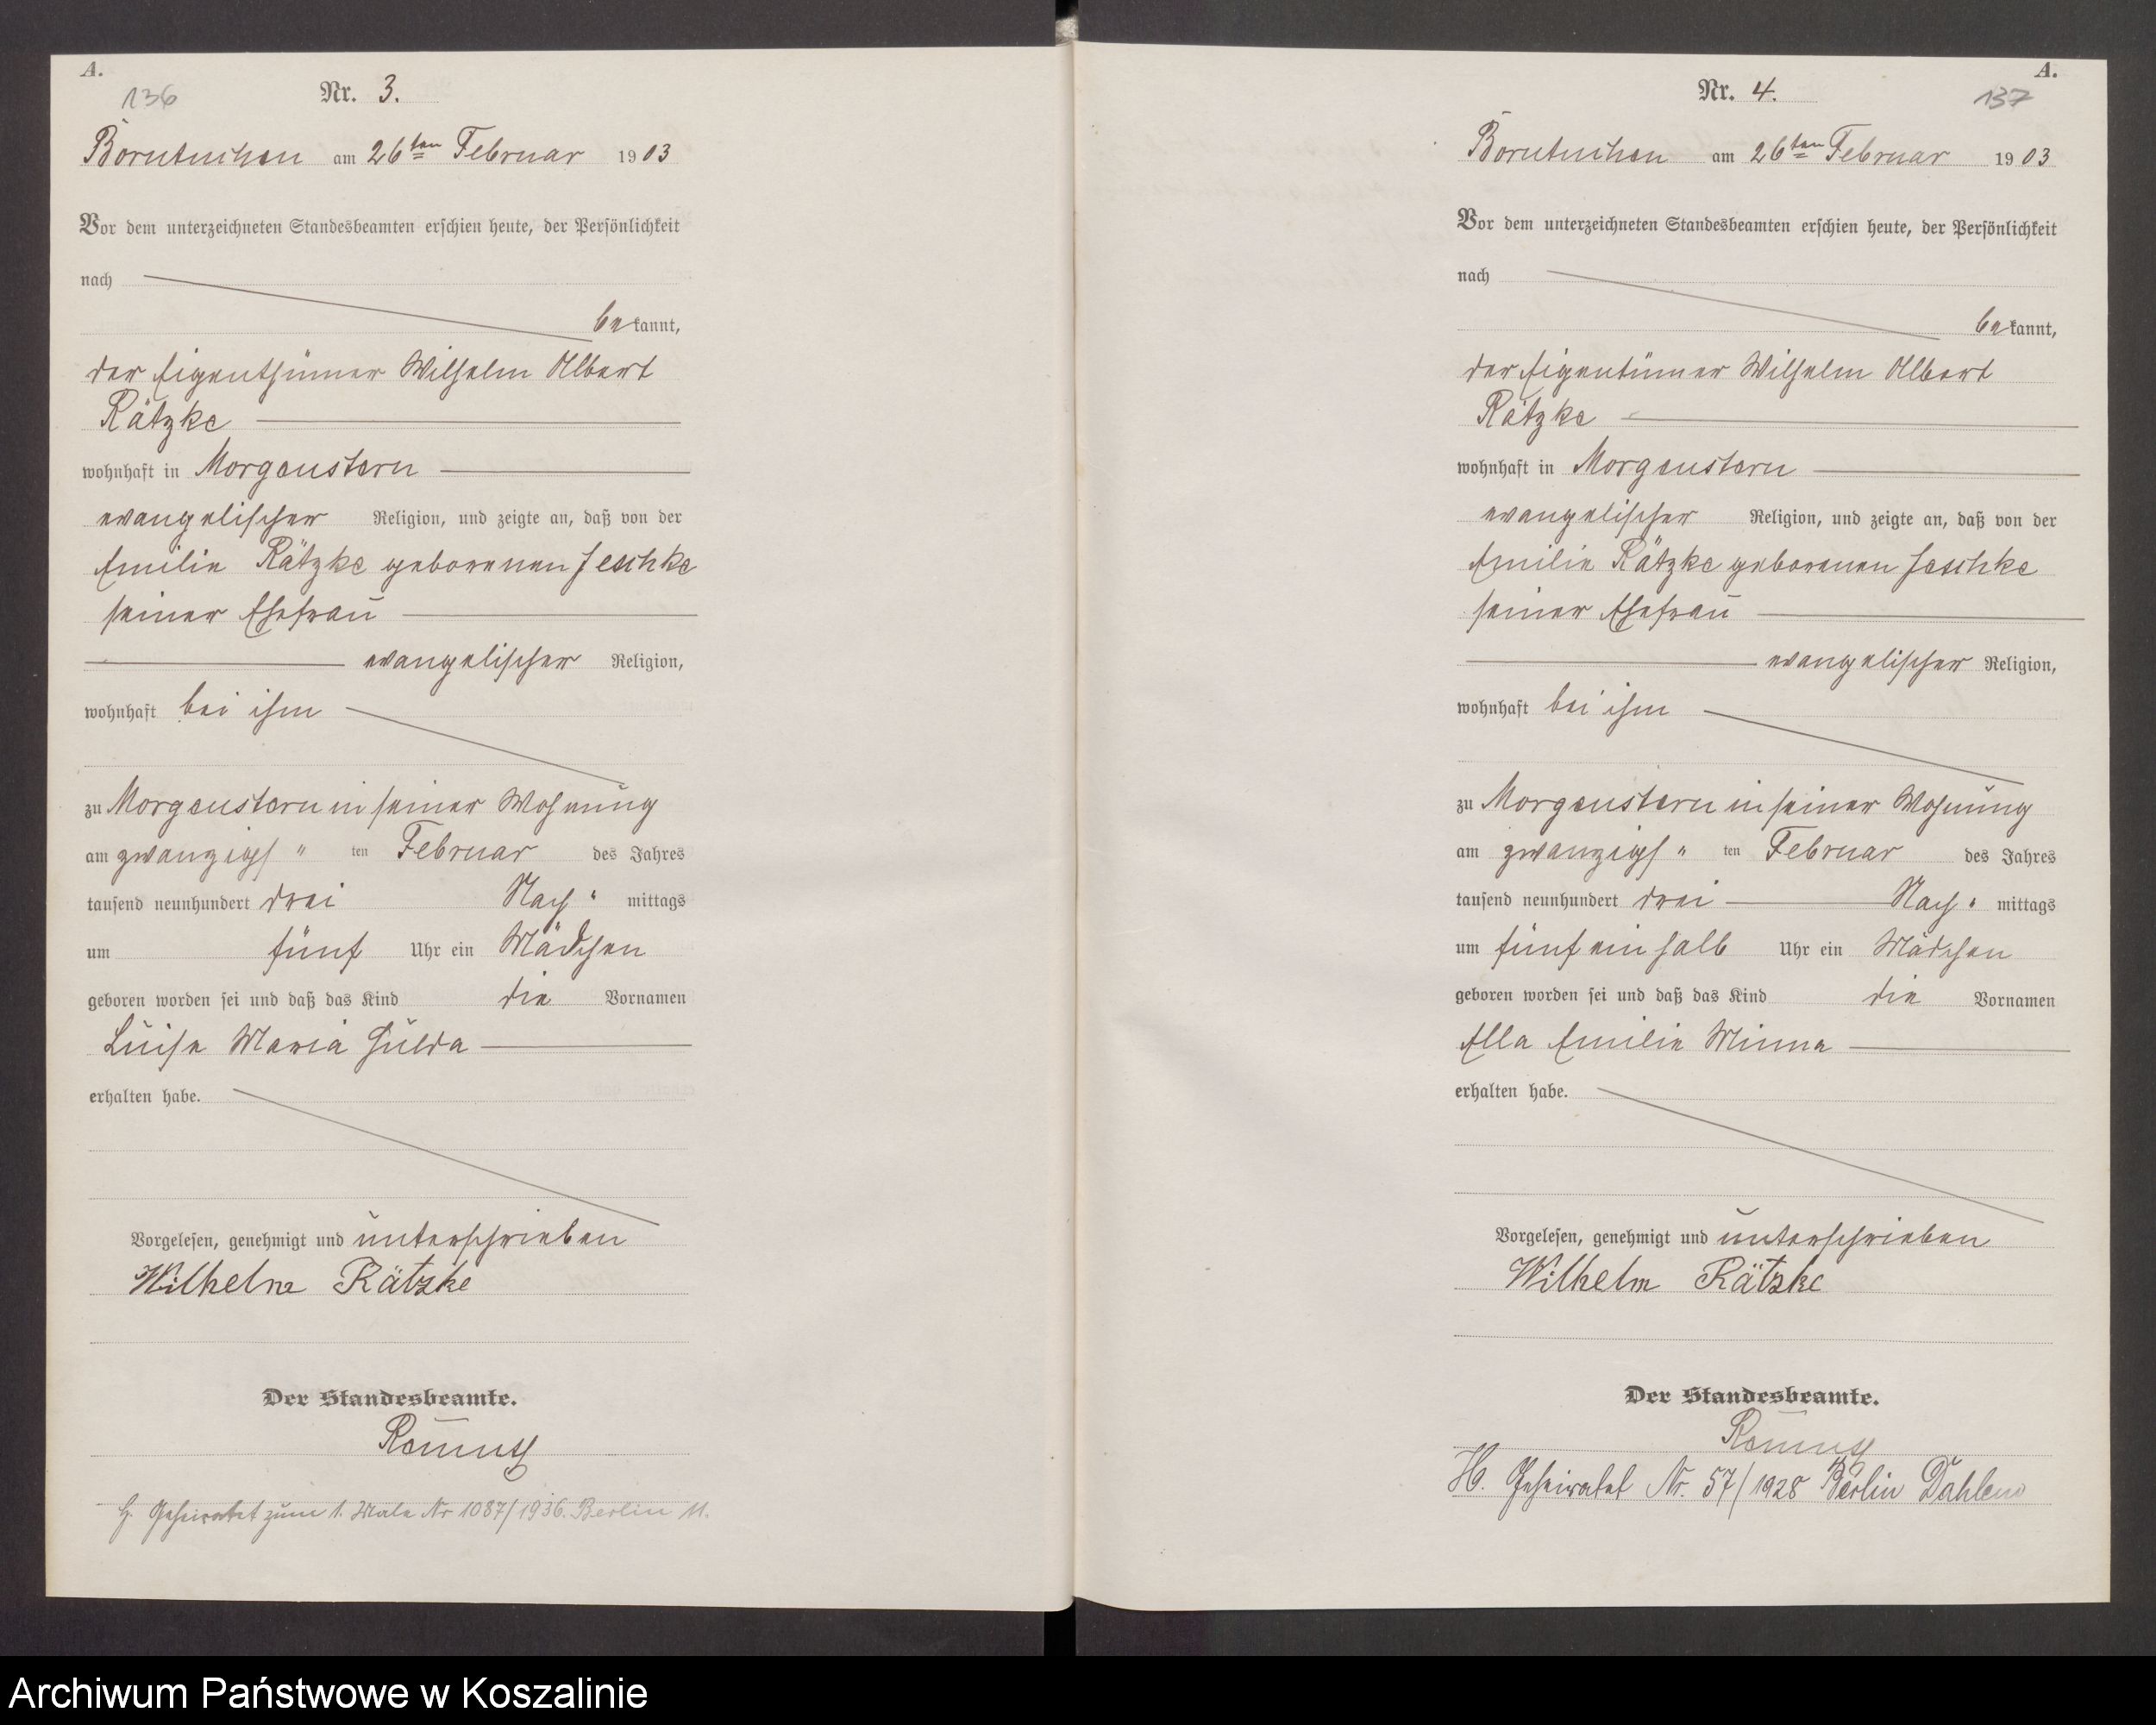 A.
136
Nr. 3.
Borntuchen am 26ten Februar 1903
Vor dem unterzeichneten Standesbeamten erschien heute, der Persönlichkeit
nach
bekannt,
der Eigenthümer Wilhelm Albert
Rätzke
wohnhaft in Morgenstern
evangelischer Religion, und zeigte an, daß von der
Emilie Rätzke geborenen Jeschke
seiner Ehefrau
evangelischer Religion,
wohnhaft bei ihm
zu Morgenstern in seiner Wohnung
am zwanzigs " ten Februar des Jahres
tausend neunhundert drei Nach " mittags
um fünf Uhr ein Mädchen
geboren worden sei und daß das Kind die Vornamen
Luise Maria Hulda
erhalten habe.
Vorgelesen, genehmigt und unterschrieben
Wilhelm Rätzke
Der Standesbeamte.
G. Geheiratet zum 1. Male Nr 1087/1936. Berlin 11.
A.
137
Nr. 4.
Borntuchen am 26ten Februar 1903
Vor dem unterzeichneten Standesbeamten erschien heute, der Persönlichkeit
nach
bekannt,
der Eigentümer Wilhelm Albert
Rätzke
wohnhaft in Morgenstern
evangelischer Religion, und zeigte an, daß von der
Emilie Rätzke geborenen Jeschke
seiner Ehefrau
evangelischer Religion,
wohnhaft bei ihm
zu Morgenstern in seiner Wohnung
am zwanzigs " ten Februar des Jahres
tausend neunhundert drei Nach " mittags
um fünf ein halb Uhr ein Mädchen
geboren worden sei und daß das Kind die Vornamen
Ella Emilie Minna
erhalten habe.
Vorgelesen, genehmigt und unterschrieben
Wilhelm Rätzke
Der Standesbeamte.
H. Geheiratet Nr. 57/1928 Berlin Dahlem
Archiwum Państwowe w Koszalinie